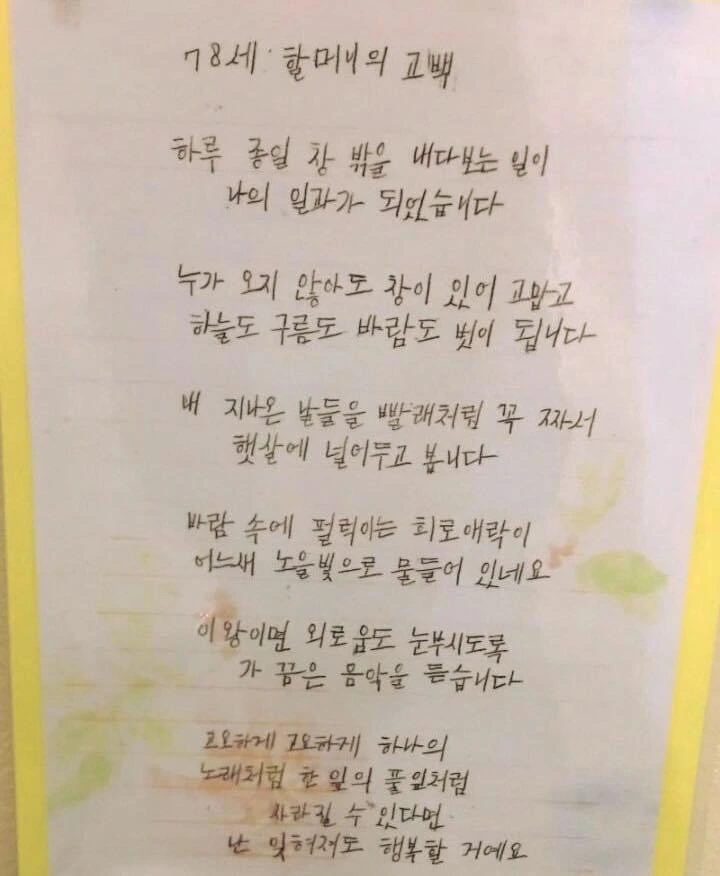 78세 할머니의 고백
하루 종일 창 밖을 내다보는 일이
나의 일과가 되었습니다
누가 오지 않아도 창이 있어 고맙고
하늘도 구름도 바람도 벗이 됩니다
내 지나온 날들을 빨래처럼 꼭 짜서
햇살에 널어두고 봅니다
바람 속에 펄럭이는 희로애락이
어느새 노을빛으로 물들어 있네요
이왕이면 외로움도 눈부시도록
가끔은 음악을 듣습니다
고요하게 고요하게 하나의
노래처럼 한 잎의 풀잎처럼
사라질 수 있다면
난 잊혀져도 행복할 거예요